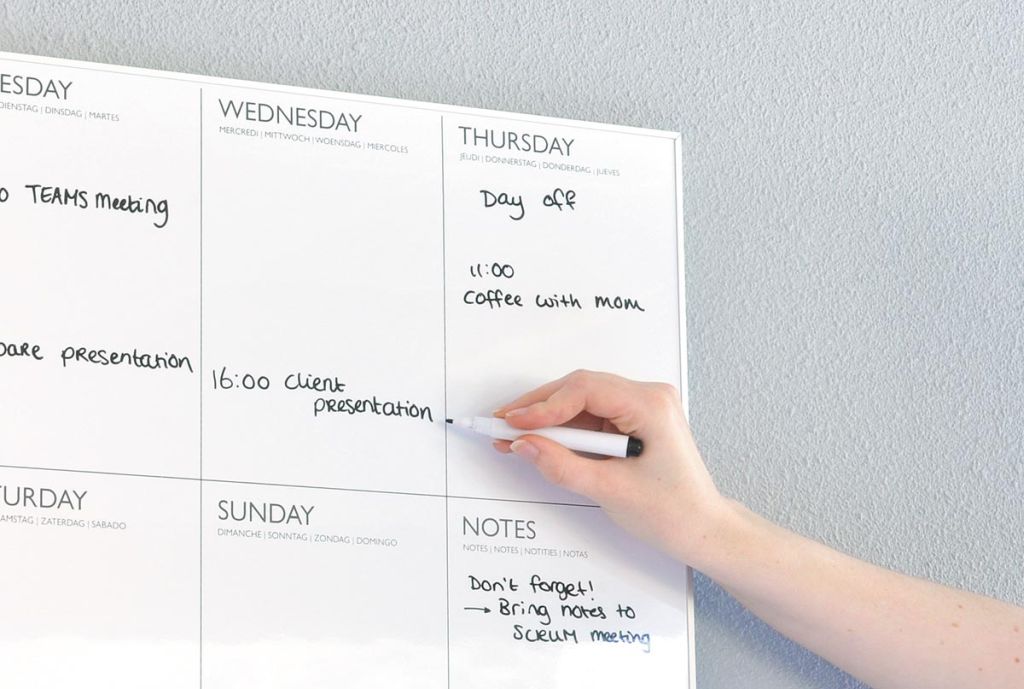 ESDAY
DIENSTAG | DINSDAG | MARTES
TEAMS meeting
presentation
WEDNESDAY
MERCREDI | MITTWOCH | WOENSDAG | MIERCOLES
16:00 client
presentation
THURSDAY
JEUDI | DONNERSTAG | DONDERDAG | JUEVES
Day off
11:00
Coffee with mom
URDAY
AMSTAG | ZATERDAG | SABADO
SUNDAY
DIMANCHE | SONNTAG | ZONDAG | DOMINGO
NOTES
NOTES | NOTES | NOTITIES | NOTAS
Don't forget!
→ Bring notes to
SCRUM meeting